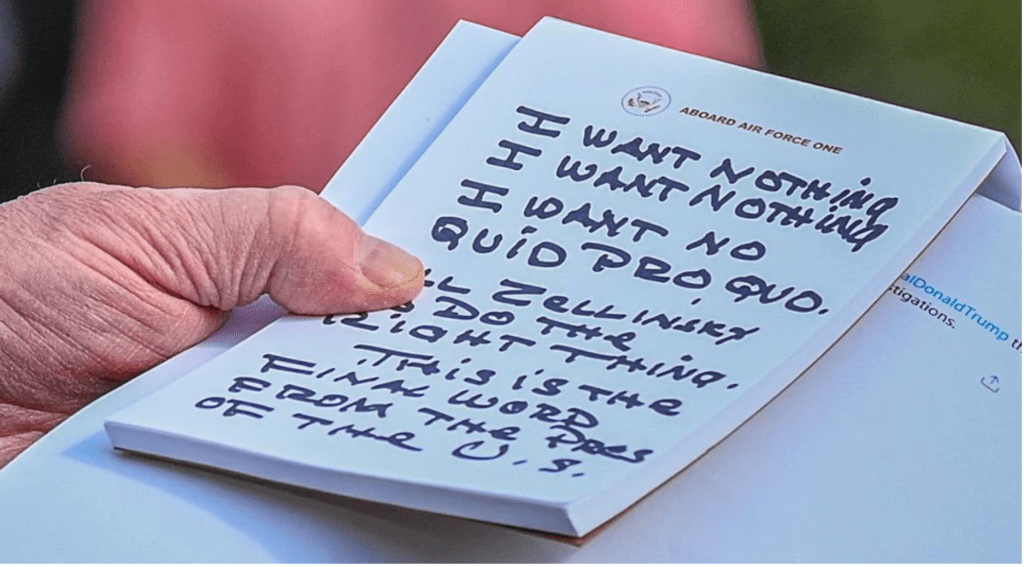 ABOARD AIR FORCE ONE
I WANT NOTHING
I WANT NOTHING
I WANT NO
QUID PRO QUO.
ZELLINSKY
DO THE
RIGHT THING.
THIS IS THE
FINAL WORD
FROM THE PRES
OF THE U.S.
alDonaldTrump th
tigations.